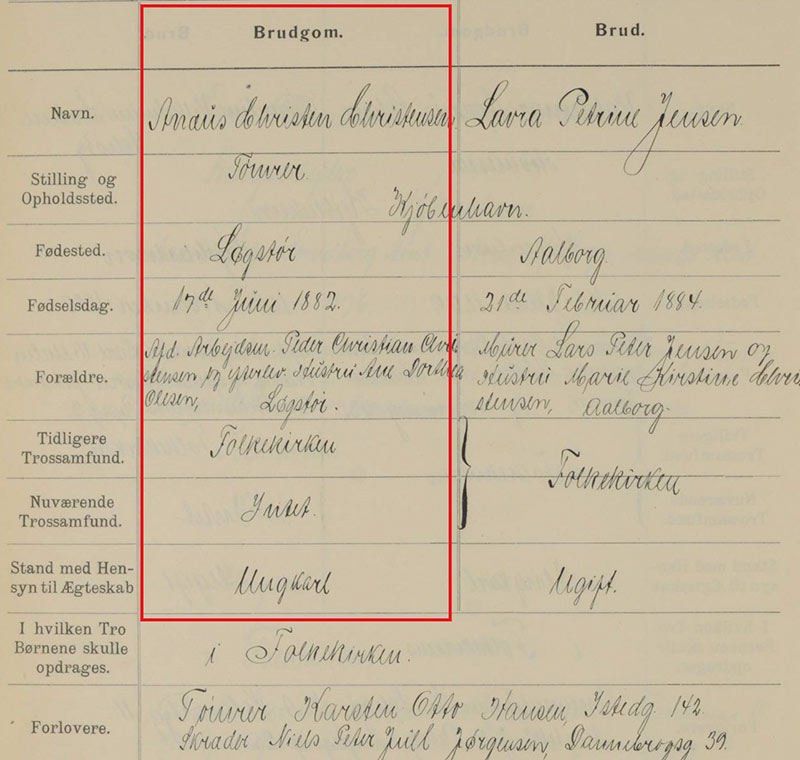 Brudgom. Brud.
Navn. Anæus Christen Christensen Lavra Petrine Jensen
Stilling og Opholdssted. Tömrer
Kjöbenhavn.
Fødested. Løgstör Aalborg.
Fødselsdag. 17de Juni 1882. 21de Februar 1884.
Forældre. Afd. Arbejdsm. Peder Christian Chri- Murer Lars Peter Jensen og
stensen og efterlev. Hustru Ane Dorthea Hustru Marie Kirstine Chri-
Olesen, Løgstör. stensen, Aalborg.
Tidligere Trossamfund. Folkekirken
Folkekirken
Nuværende Trossamfund. Intet.
Stand med Hen-
syn til Ægteskab Ungkarl Ugift.
I hvilken Tro
Børnene skulle i Folkekirken.
opdrages.
Forlovere. Tömrer Karsten Otto Hansen, Istedg. 142.
Skrædder Niels Peter Jull Jørgensen, Dannebrogsg. 39.